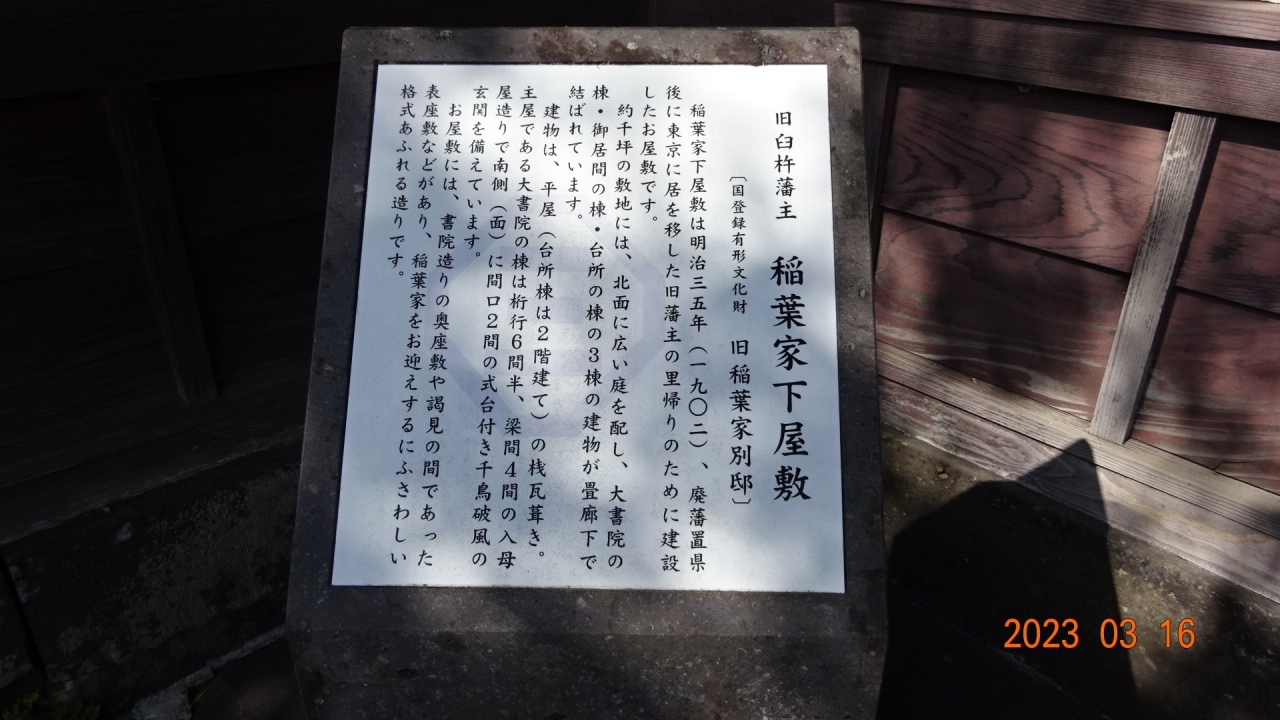 旧臼杵藩主 稲葉家下屋敷
〔国登録有形文化財 旧稲葉家別邸〕
稲葉家下屋敷は明治三五年（一九〇二）、廃藩置県
後に東京に居を移した旧藩主の里帰りのために建設
したお屋敷です。
約千坪の敷地には、北面に広い庭を配し、大書院の
棟・御居間の棟・台所の棟の3棟の建物が畳廊下で
結ばれています。
建物は、平屋（台所棟は2階建て）の桟瓦葺き。
主屋である大書院の棟は桁行6間半、梁間4間の入母
屋造りで南側（面）に間口2間の式台付き千鳥破風の
玄関を備えています。
お屋敷には、書院造りの奥座敷や謁見の間であった
表座敷などがあり、稲葉家をお迎えするにふさわしい
格式あふれる造りです。
2023 03 16